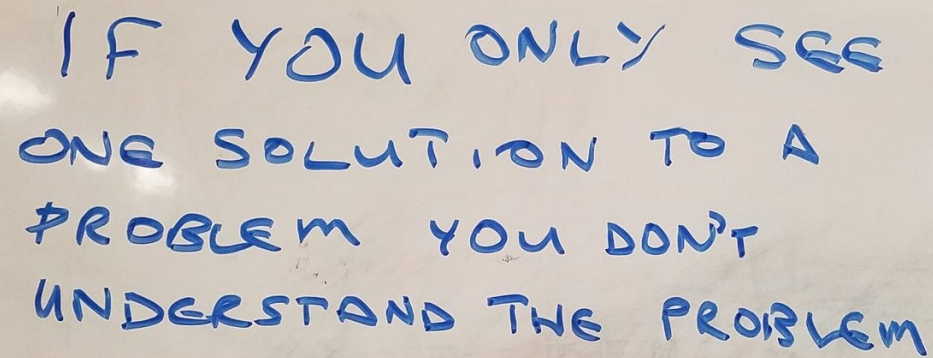 IF YOU ONLY SEE
ONE SOLUTION TO A
PROBLEM YOU DON'T
UNDERSTAND THE PROBLEM